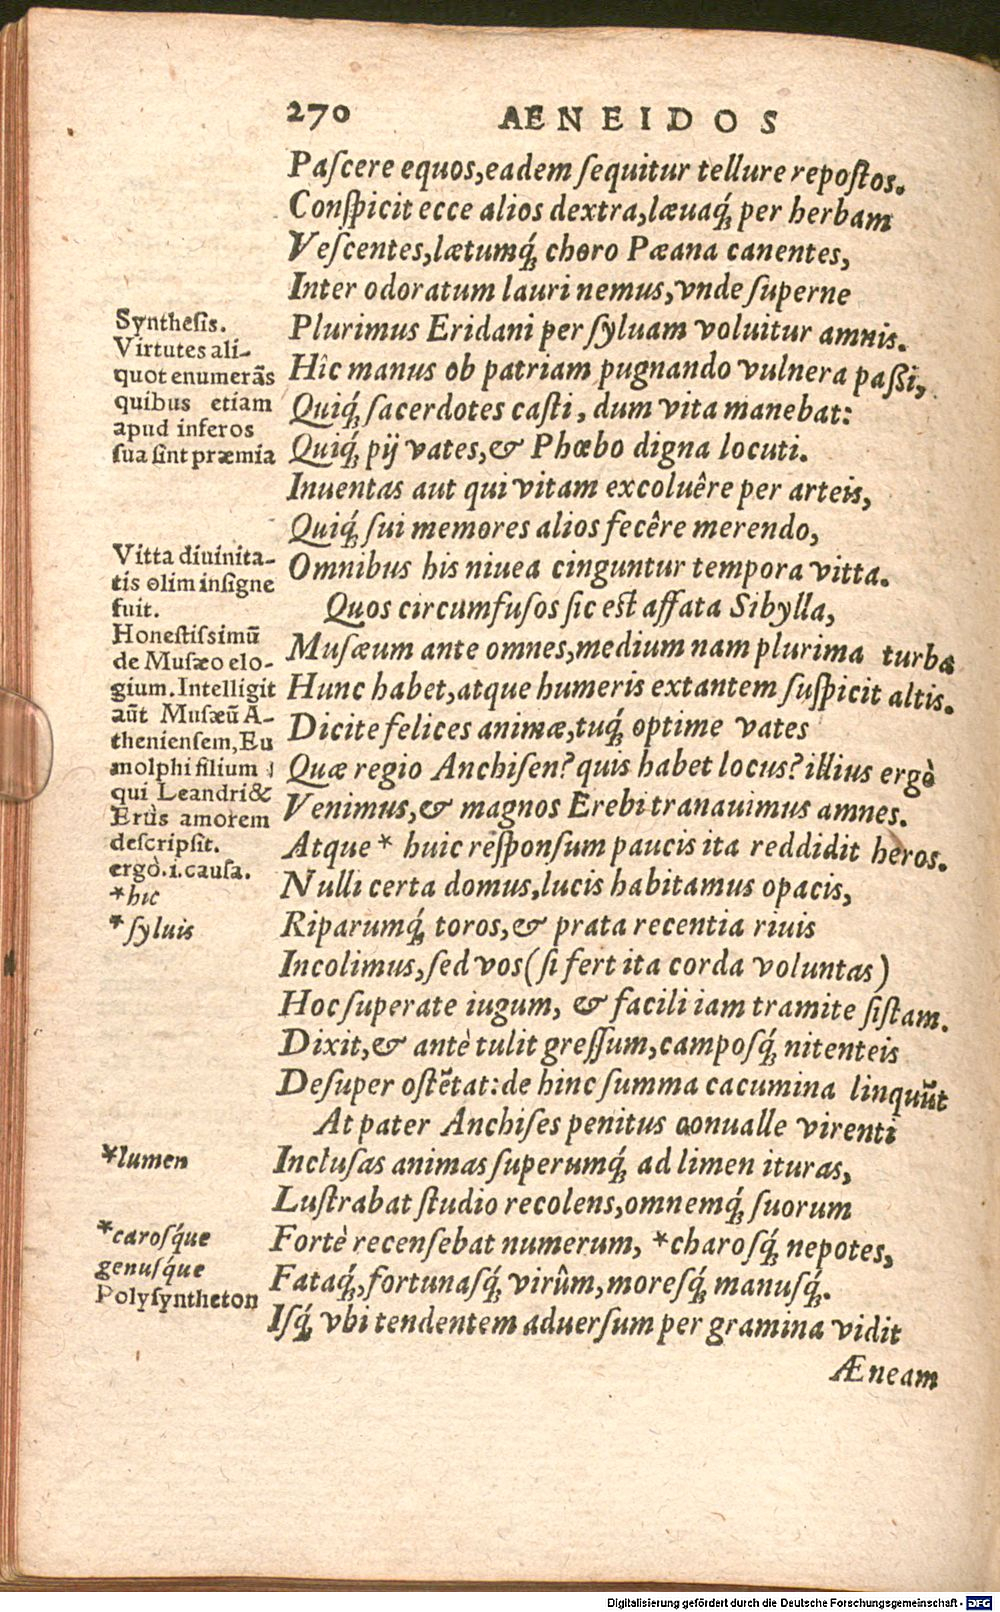 270 AENEIDOS
Paſcere equos,eadem ſequitur tellure repoſtos.
Conſpicit ecce alios dextra,læuaq́ꝫ per herbam
Veſcentes,lætumq́ꝫ choro Pæana canentes,
Inter odoratum lauri nemus,vnde ſuperne
Plurimus Eridani per ſyluam voluitur amnis.
Hîc manus ob patriam pugnando vulnera paßi,
Quiq́ꝫ ſacerdotes caſti, dum vita manebat:
Quiq́ꝫ pij vates,& Phœbo digna locuti.
Inuentas aut qui vitam excoluêre per arteis,
Quiq́ꝫ ſui memores alios fecêre merendo,
Omnibus his niuea cinguntur tempora vitta.
Quos circumfuſos ſic eſt affata Sibylla,
Muſæum ante omnes,medium nam plurima turba
Hunc habet,atque humeris extantem ſuſpicit altis.
Dicite felices animæ,tuq́ꝫ optime vates
Quæ regio Anchiſen? quis habet locus? illius ergò
Venimus,& magnos Erebi tranauimus amnes.
Atque * huic reſponſum paucis ita reddidit heros.
Nulli certa domus,lucis habitamus opacis,
Riparumq́ꝫ toros,& prata recentia riuis
Incolimus,ſed vos (ſi fert ita corda voluntas)
Hoc ſuperate iugum, & facili iam tramite ſiſtam.
Dixit,& antè tulit greſſum,campoſq́ꝫ nitenteis
Deſuper oſtẽtat:de hinc ſumma cacumina linquũt
At pater Anchiſes penitus conualle virenti
Incluſas animas ſuperumq́ꝫ ad limen ituras,
Luſtrabat ſtudio recolens,omnemq́ꝫ ſuorum
Fortè recenſebat numerum, *charoſq́ꝫ nepotes,
Fataq́ꝫ,fortunaſq́ꝫ virûm,moreſq́ꝫ manuſq́ꝫ.
Iſq́ꝫ vbi tendentem aduerſum per gramina vidit
Æneam
Syntheſis.
Virtutes ali-
quot enumerãs
quibus etiam
apud inferos
ſua ſint præmia
Vitta diuinita-
tis olim inſigne
fuit.
Honeſtiſsimũ
de Muſæo elo-
gium. Intelligit
aũt Muſæũ A-
thenienſem, Eu
molphi filium
qui Leandri &
Erûs amorem
deſcripſit.
ergò.i.cauſa.
*hic
*ſyluis
*lumen
*caroſq́ue
genuſq́ue
Polyſyntheton
Digitalisierung gefördert durch die Deutsche Forschungsgemeinschaft - DFG